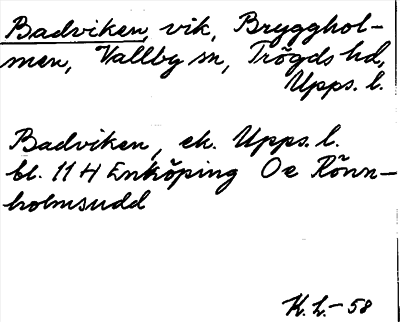 Badviken, vik, Brygghol-
men, Vallby sn, Trögds hd,
Upps. l.
Badviken, ek. Upps. l.
bl. 11 H Enköping Oe Rönn-
holmsudd
K.L.-58